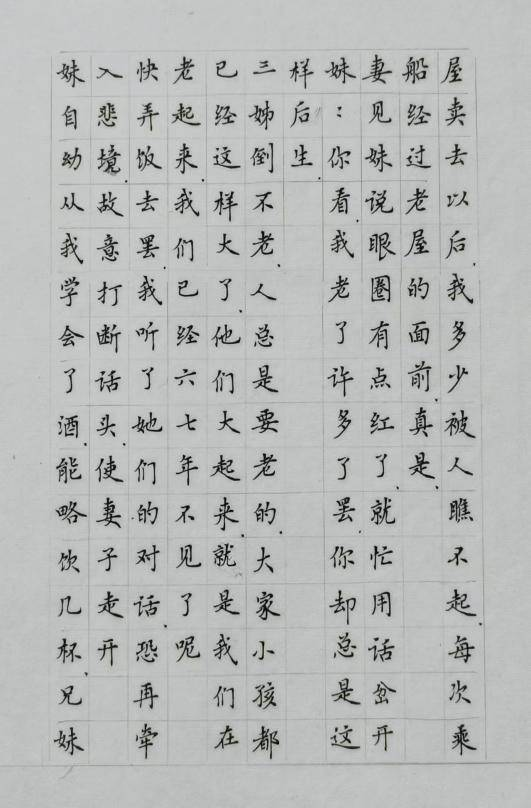 屋卖去以后.我多少被人瞧不起.每次乘
船经过老屋的面前.真是.
妻见妹说眼圈有点红了.就忙用话岔开
妹:你看.我老了许多了.罢.你却总是这
样后生.
三姊倒不老.人总是要老的.大家小孩都
已经这样大了.他们大起来.就是我们在
老起来.我们已经六七年不见了呢
快弄饭去罢.我听了她们的对话.恐再牵
入悲境.故意打断话头.使妻子走开
妹自幼从我学会了酒.能略饮几杯.兄妹